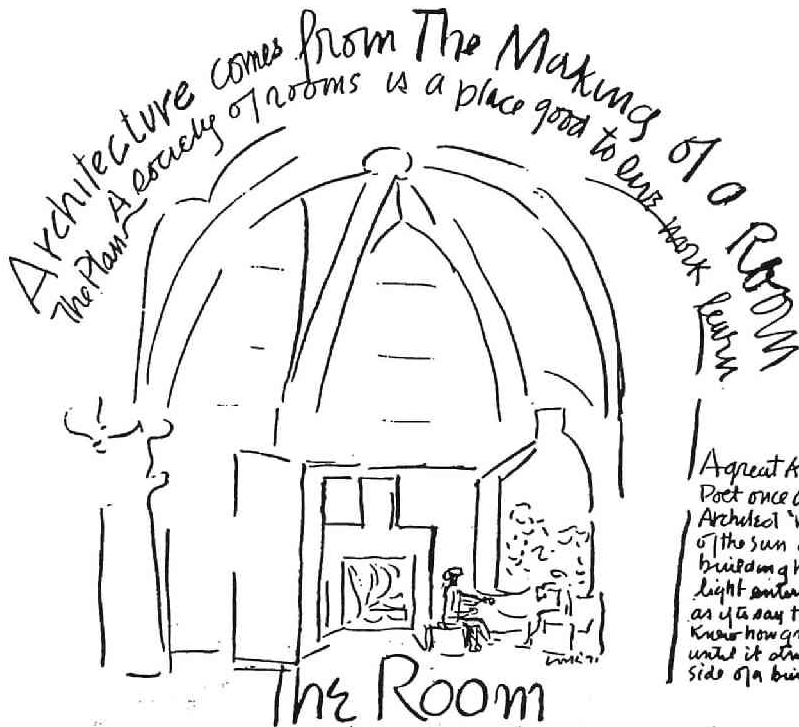 Architecture comes from The Making of a Room
The Plan A society of rooms is a place good to live work learn
A great
Poet once
Architect
of the sun
building
light
as if to say
knew how
until it
side of a
The Room